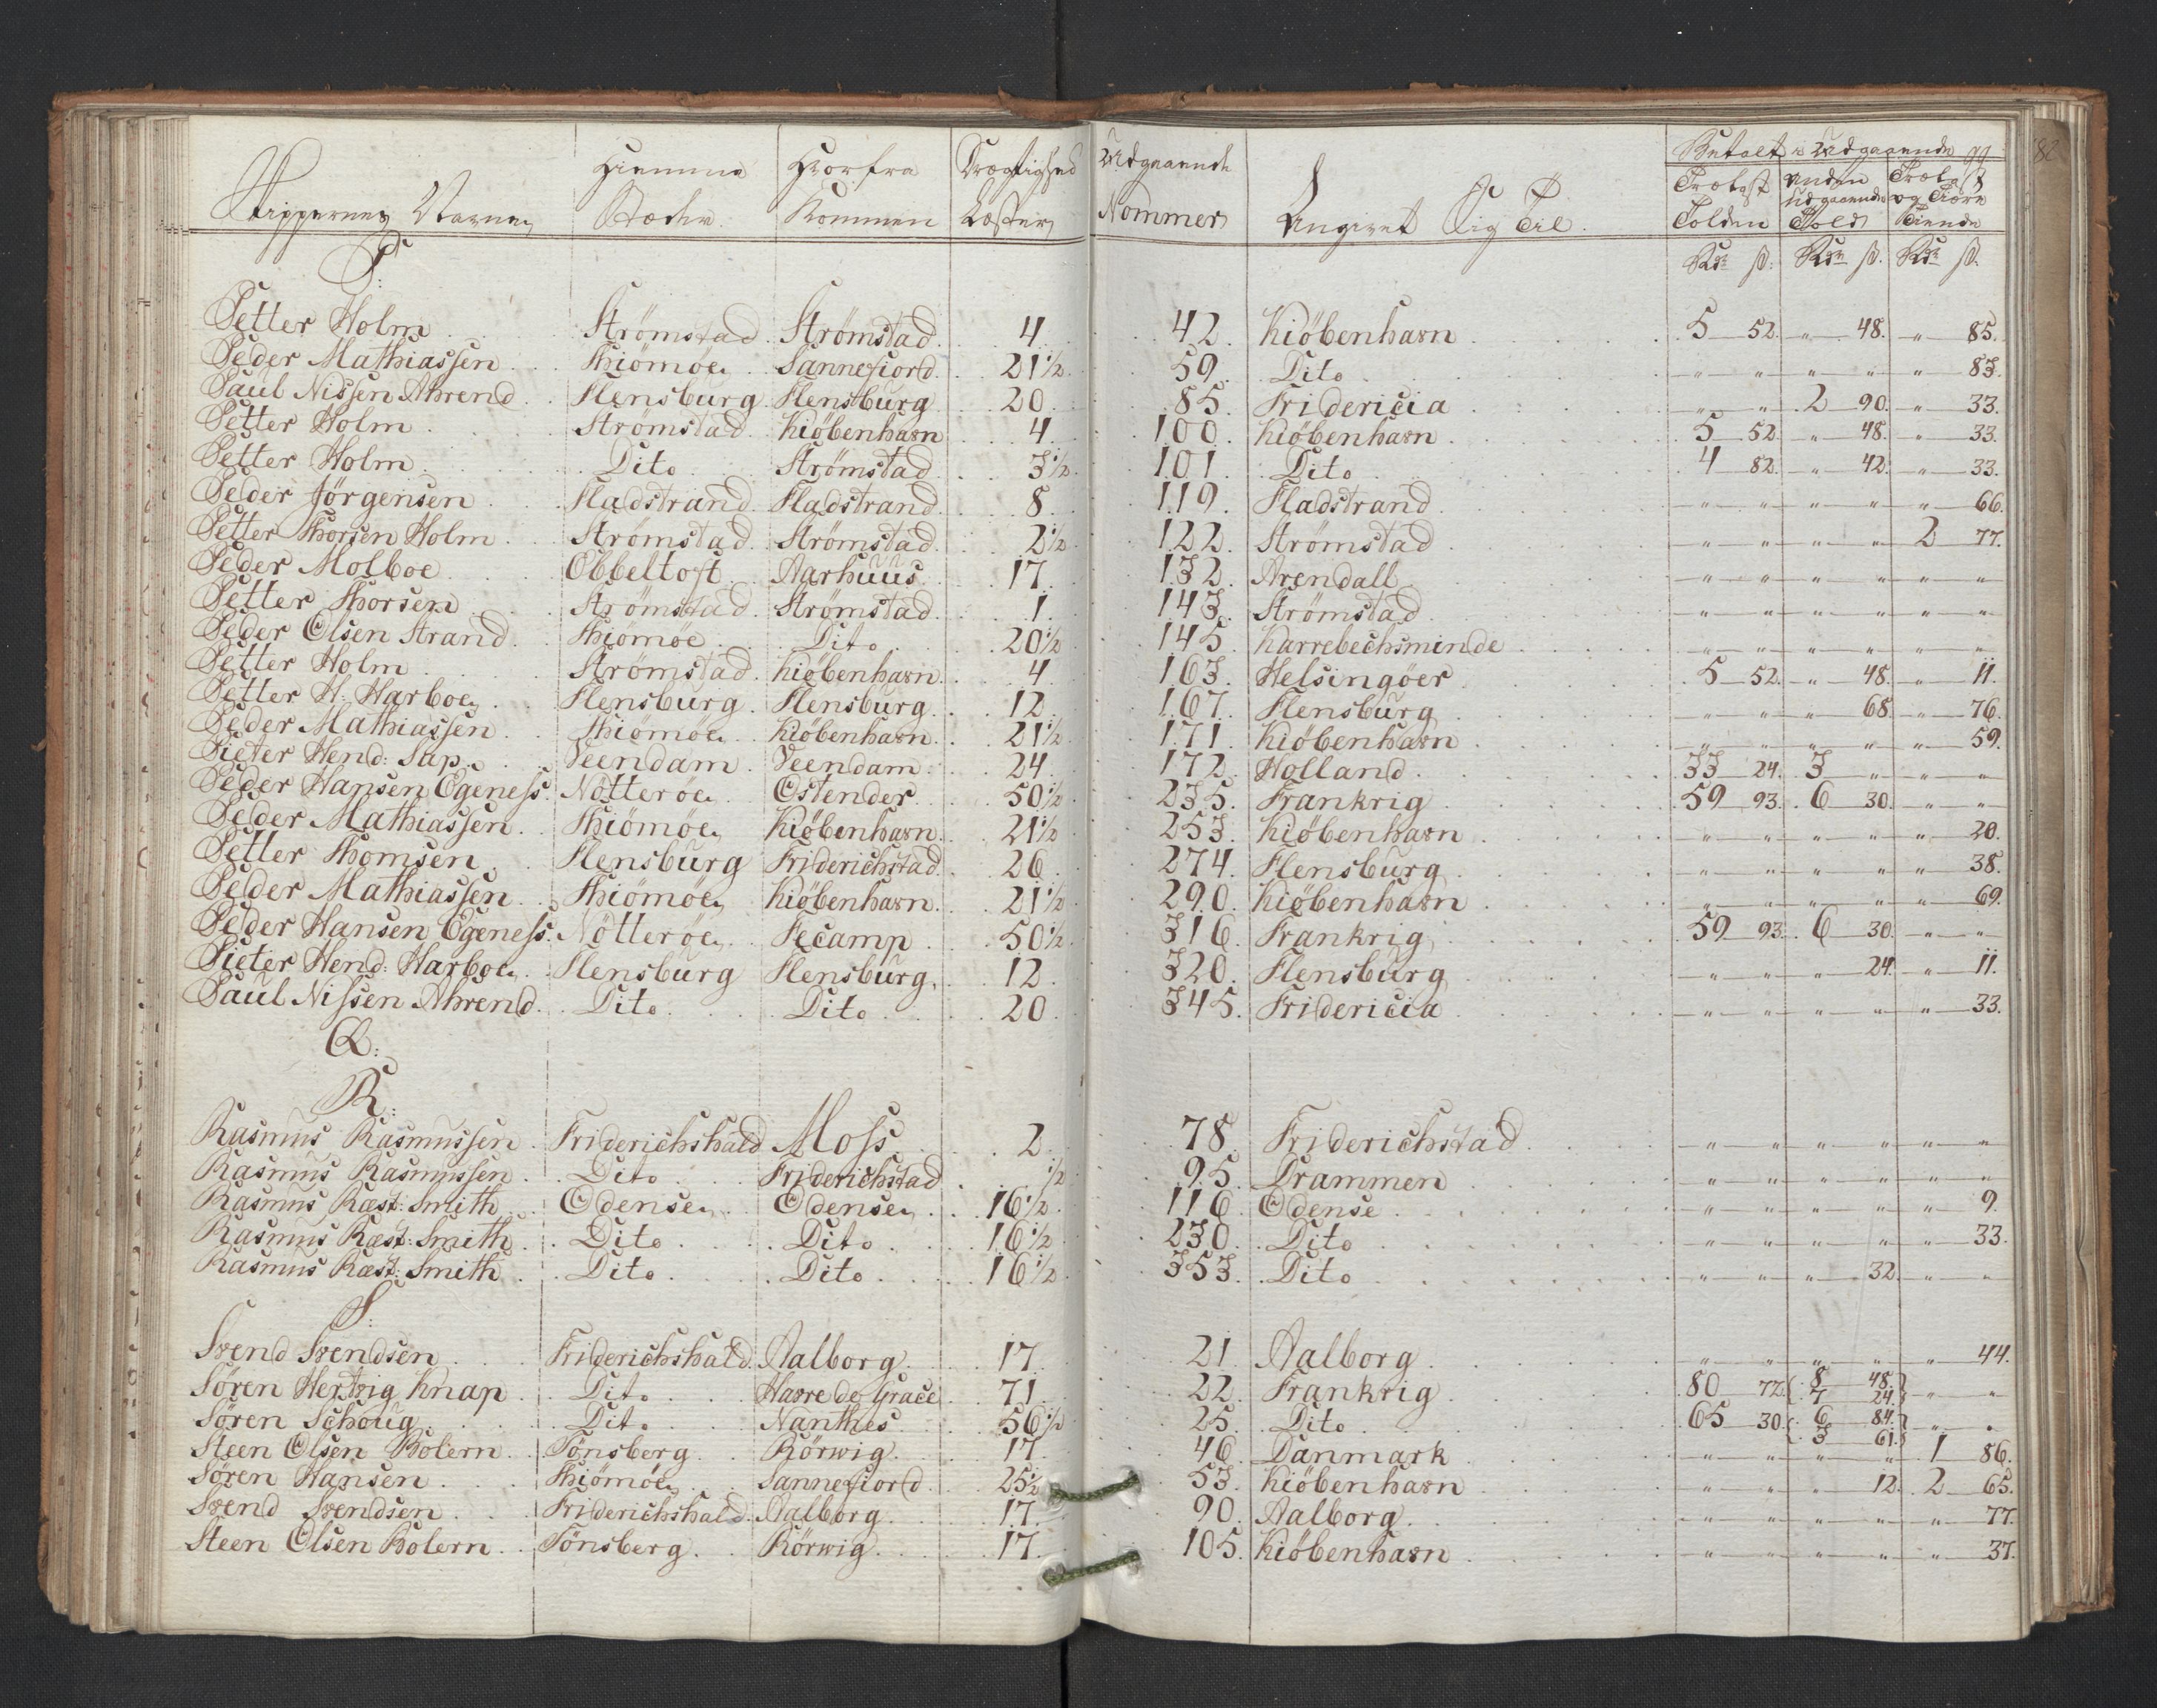 Skippernes Navne Hiemme Stæder Hvorfra Kommen Drægtighed Læster Udgaaende Nommer Angivet Sig Til Betalt i Udgaaende
Trælast Tolden Anden Udgaaende Told Trælast og Tiære Tiende
Rdr ß: Rdr ß. Rdr ß.
P:
Petter Holm Strømstad Strømstad 4 42. Kiøbenhavn 5 52. " 48. " 85.
Peder Mathiassen Thiømøe Sannefiord 21½ 59. Dito " " " " " 83.
Paul Nissen Ahrend Flensburg Flensburg 20 85. Fridericia " " 2 90. " 33.
Petter Holm Strømstad Kiøbenhavn 4 100. Kiøbenhavn 5 52. " 48. " 33.
Petter Holm Dito Strømstad 3½ 101. Dito 4 82. " 42. " 33.
Peder Jørgensen Fladstrand Fladstrand 8 119. Fladstrand " " " " " 66.
Petter Thorsen Holm Strømstad Strømstad 2½ 122. Strømstad " " " " 2 77.
Peder Molboe Ebbeltoft Aarhuus 17 132. Arendall " " " " " "
Petter Thorsen Strømstad Strømstad 1 143. Strømstad " " " " " "
Peder Olsen Strand Thiømøe Dito 20½ 145. Karrebechsminde " " " " " "
Petter Holm Strømstad Kiøbenhavn 4 163. Helsingöer 5 52. " 48. " 11.
Petter H: Harboe Flensburg Flensburg 12 167. Flensburg " " " 68. " 76.
Peder Mathiassen Thiømøe Kiøbenhavn 21½ 171. Kiøbenhavn " " " " " 59.
Pieter Hend: Sap Veendam Veendam 24 172. Holland 33 24. 3 " " "
Peder Hansen Egeness Nøtterøe Ostender 50½ 235. Frankrig 59 93. 6 30. " "
Peder Mathiassen Thiømøe Kiøbenhavn 21½ 253. Kiøbenhavn " " " " " 20.
Petter Thomsen Flensburg Friderichstad 26 274. Flensburg " " " " " 38.
Peder Mathiassen Thiømøe Kiøbenhavn 21½ 290. Kiøbenhavn " " " " " 69.
Peder Hansen Egeness Nøtterøe Fecamp 50½ 316. Frankrig 59 93. 6 30. " "
Pieter Hend: Harboe Flensburg Flensburg 12 320. Flensburg " " " 24. " 11.
Paul Nissen Ahrend Dito Dito 20 345. Fridericia " " " " " 33.
Q:
R:
Rasmus Rasmussen Friderichshald Moss 2 78. Friderichstad " " " " " "
Rasmus Rasmussen Dito Friderichstad ½ 95. Drammen " " " " " "
Rasmus Ræst: Smith Odense Odense 16½ 116. Odense " " " " " 9.
Rasmus Ræst: Smith Dito Dito 16½ 230. Dito " " " " " 33.
Rasmus Ræst: Smith Dito Dito 16½ 353. Dito " " " 32. " "
S:
Svend Svendsen Friderichshald Aalborg 17 21. Aalborg " " " " " 44.
Søren Hertvig Knap Dito Havre de Grace 71 22. Frankrig 80 72. 8 48. 7 24. " "
Søren Schoug Dito Nanthes 56½ 25. Dito 65 30. 6 84. 3 61. " "
Steen Olsen Bolern Tønsberg Rørwig 17 46. Danmark " " " " 1 86.
Søren Hansen Thiømøe Sannefiord 25½ 53. Kiøbenhavn " " " 12. 2 65.
Svend Svendsen Friderichshald Aalborg 17. 90. Aalborg " " " " " 77.
Steen Olsen Bolern Tønsberg Rørwig 17. 105. Kiøbenhavn " " " " " 37.